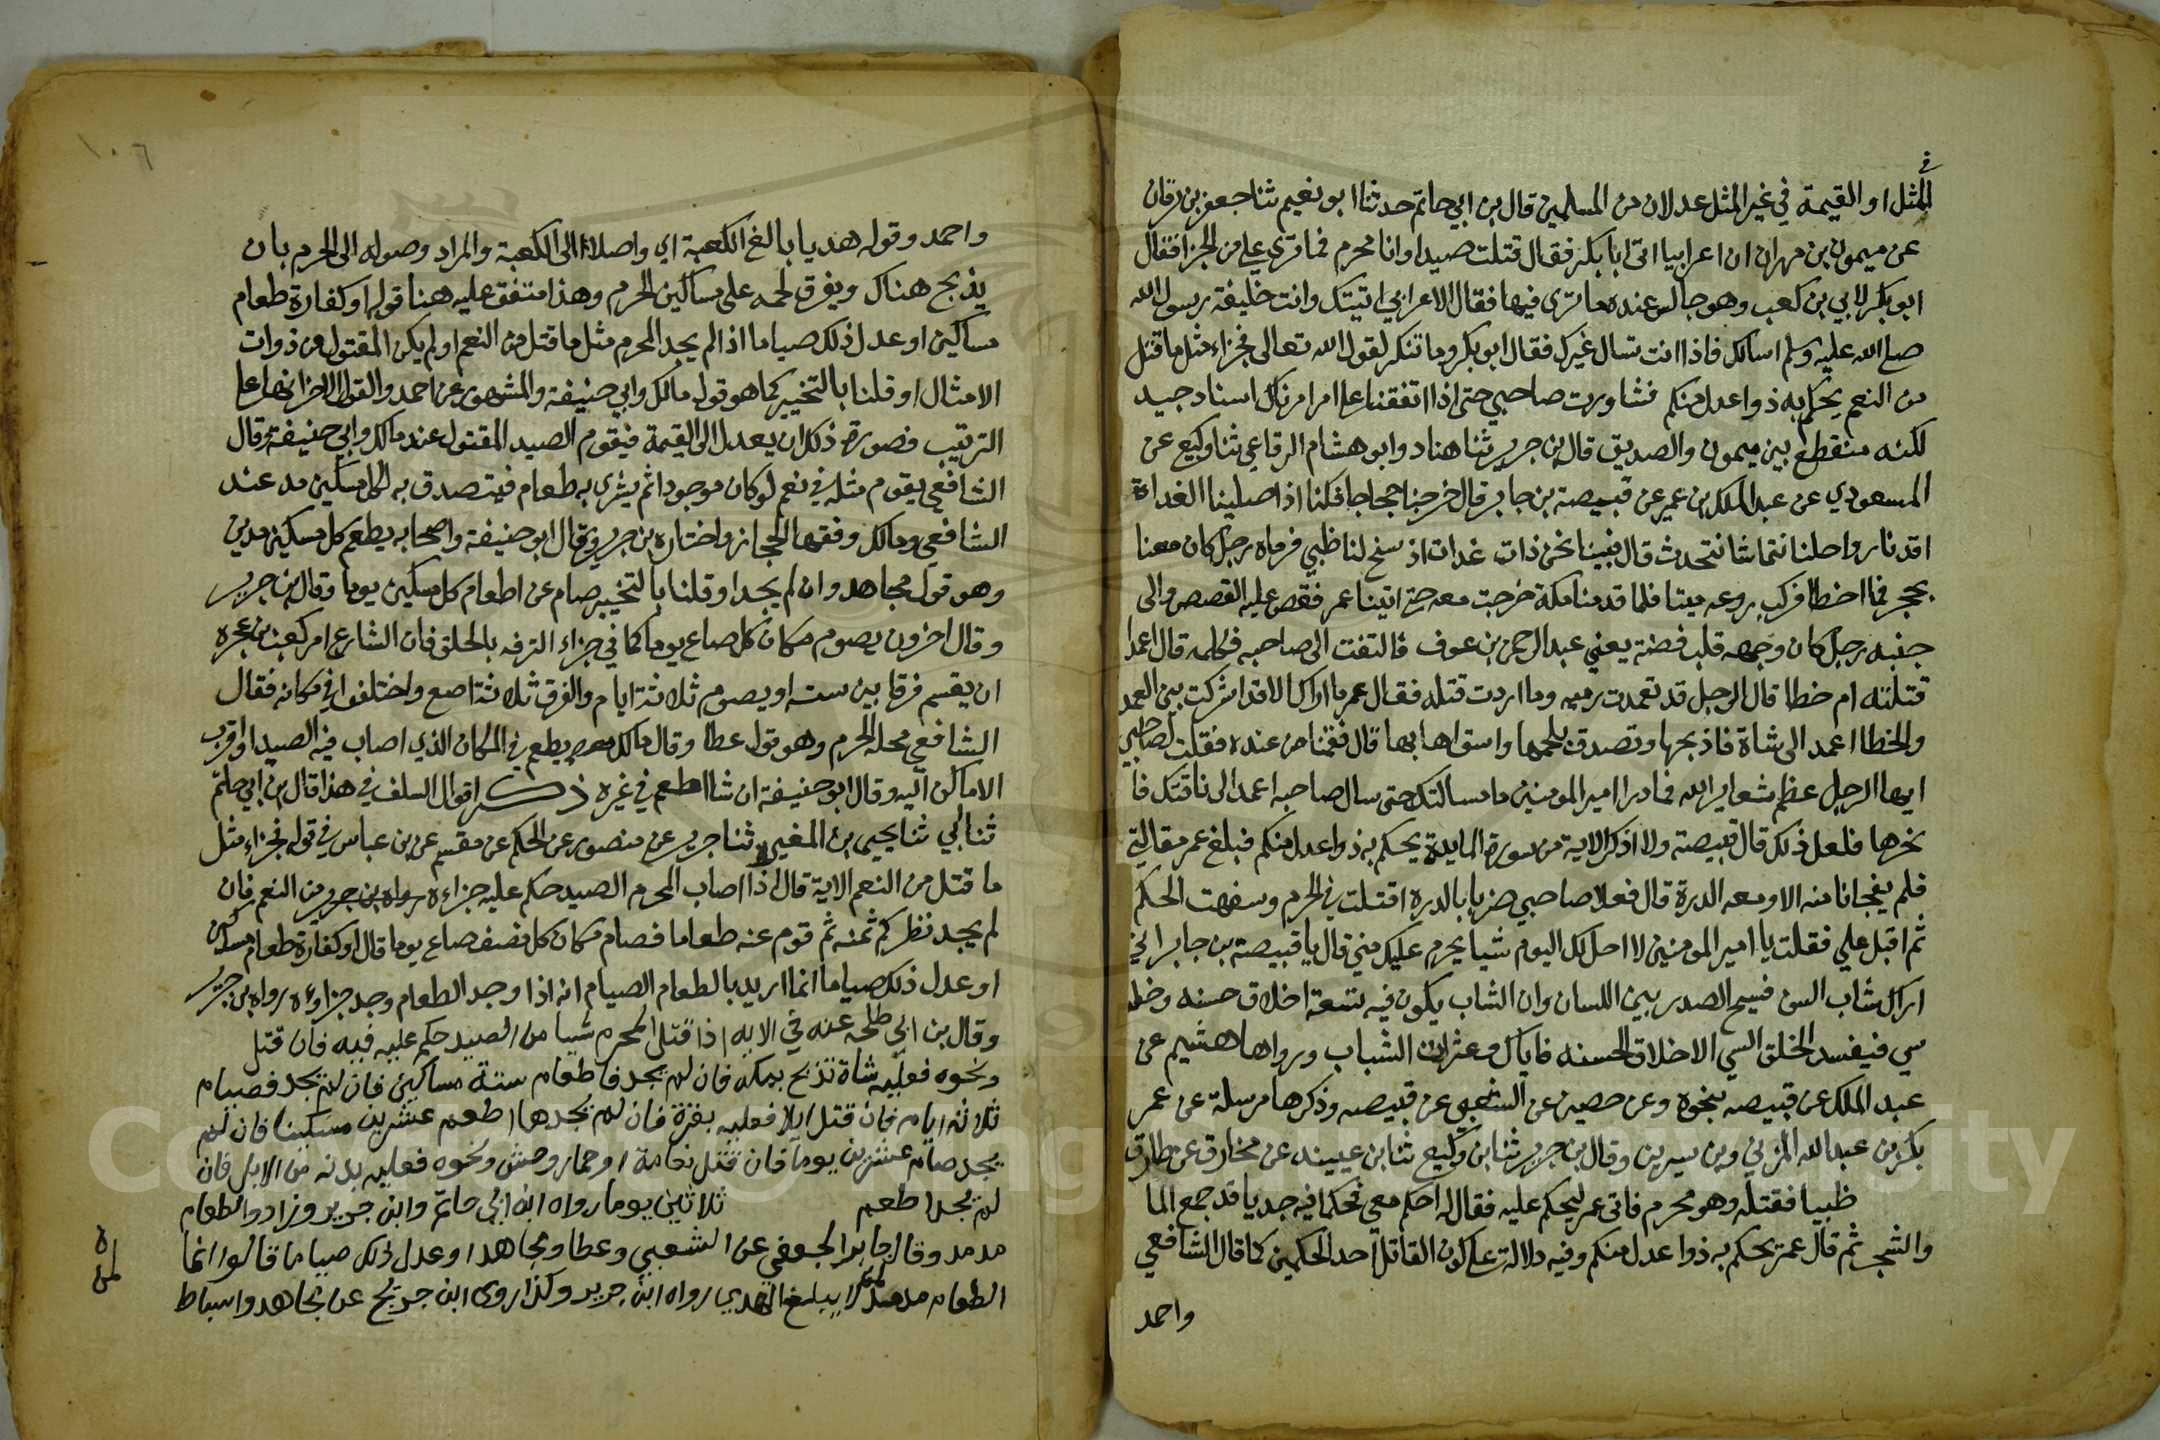 في
المثل او القيمة في غير المثل عدلان من المسلمين قال بن ابي حاتم حدثنا ابو نعيم ثنا جعفر بن برقان
عن ميمون بن مهران ان اعرابيا اتى ابا بكر فقال قتلت صيدا وانا محرم فما ترى علي من الجزا فقال
ابو بكر لابي بن كعب وهو جالس عنده ما ترى فيها فقال الاعرابي اتيتك وانت خليفة رسول الله
صلى الله عليه وسلم اسالك فاذا انت تسال غيرك فقال ابو بكر وما تنكر لقول الله تعالى فجزاء مثل ما قتل
من النعم يحكم به ذوا عدل منكم فشاورت صاحبي حتى اذا اتفقنا على امر امرناك اسناد جيد
لكنه منقطع بين ميمون والصديق قال بن جرير ثنا هناد وابو هشام الرفاعي ثنا وكيع عن
المسعودي عن عبد الملك بن عمير عن قبيصة بن جابر قال خرجنا حجاجا فكنا اذا صلينا الغداة
اقدنا رواحلنا نتماشا نتحدث قال فبينا نحن ذات غدات اذ سنح لنا ظبي فرماه رجل كان معنا
بحجر فما اخطا فركب روعه ميتا فلما قدمنا مكة خرجت معه حتى اتينا عمر فقص عليه القصص والى
جنبه رجل كان وجهه قلب فضة يعني عبد الرحمن بن عوف فالتفت الى صاحبه فكلمه قال اعمدا
قتلته ام خطا قال الرجل قد تعمدت رميه وما اردت قتله فقال عمر ما اراك الا قد اشركت بين العمد
والخطا اعمد الى شاة فاذبحها وتصدق بلحمها واسق اهابها قال فقمنا من عنده فقلت لصاحبي
ايها الرجل عظم شعاير الله فما درا امير المومنين ما سالتك حتى سال صاحبه اعمد الى ناقتك فا
نحرها فلعل ذلك قال قبيصة ولا اذكر الاية من سورة المايدة يحكم به ذوا عدل منكم فبلغ عمر مقالتي
فلم يفجانا منه الا ومعه الدرة قال فعلا صاحبي ضربا بالدرة اقتلت في الحرم وسفهت الحكم
ثم اقبل علي فقلت يا امير المومنين لا احل لك اليوم شيا يحرم عليك مني قال يا قبيصة بن جابر اني
اراك شاب السن فسيح الصدر بين اللسان وان الشاب يكون فيه تسعة اخلاق حسنه وخلق
سي فيفسد الخلق السي الاخلاق الحسنه فاياك وعثرات الشباب ورواها هشيم عن
عبد الملك عن قبيصه بنحوه وعن حصين عن الشعبي عن قبيصه وذكرها مرسلة عن عمر
بكر بن عبد الله المزني وبن سيرين وقال بن جرير ثنا بن وكيع ثنا بن عيينه عن مخارق عن طارق
ظبيا فقتله وهو محرم فاتى عمر ليحكم عليه فقال له احكم معي فحكما فيه جديا قد جمع الما
والشجر ثم قال عمر يحكم به ذوا عدل منكم وفيه دلالة على كون القاتل احد الحكمين كما قال الشافعي
واحمد
١٠٦
واحمد وقوله هديا بالغ الكعبة اي واصلا الى الكعبة والمراد وصوله الى الحرم بان
يذبح هناك ويفرق لحمه على مساكين الحرم وهذا متفق عليه هنا قوله او كفارة طعام
مساكين او عدل ذلك صياما اذا لم يجد المحرم مثل ما قتل من النعم او لم يكن المقتول من ذوات
الامثال او قلنا بالتخيير كما هو قول مالك وابي حنيفة والمشهور عن احمد والقول الاخر انها على
الترتيب فصورة ذلك ان يعدل الى القيمة فيقوم الصيد المقتول عند مالك وابي حنيفة وقال
الشافعي يقوم مثله في نعم لو كان موجودا ثم يشرى به طعام فيتصدق به لكل مسكين مد عند
الشافعي ومالك وفقها الحجاز واختاره بن جرير وقال ابو حنيفة واصحابه يطعم كل مسكين مدين
وهو قول مجاهد وان لم يجد او قلنا بالتخيير صام عن اطعام كل مسكين يوما وقال بن جرير
وقال اخرون يصوم مكان كل صاع يوما كما في جزاء الترفه بالحلق فان الشارع امر كعب بن عجره
ان يقسم فرقا بين سته او يصوم ثلاثة ايام والفرق ثلاثة اصع واختلفوا في مكانه فقال
الشافعي محله الحرم وهو قول عطا وقال مالك يطعم في المكان الذي اصاب فيه الصيد او اقرب
الاماكن اليه وقال ابو حنيفة ان شا اطعم في غيره ذكر اقوال السلف في هذا قال بن ابي حاتم
ثنا ابي ثنا يحيى بن المغيره ثنا جرير عن منصور عن الحكم عن مقسم عن بن عباس في قوله فجزاء مثل
ما قتل من النعم الاية قال اذا اصاب المحرم الصيد حكم عليه جزاءه رواه بن جرير من النعم فان
لم يجد نظر كم ثمنه ثم قوم عنه طعاما فصام مكان كل نصف صاع يوما قال او كفارة طعام مساكين
او عدل ذلك صياما انما اريد بالطعام الصيام انه اذا وجد الطعام وجد جزاوءه رواه بن جرير
وقال بن ابي طلحه عنه في الايه اذا قتل المحرم شيا من الصيد حكم عليه فيه فان قتل
ونحوه فعليه شاة تذبح بمكه فان لم يجد فاطعام ستة مساكين فان لم يجد فصيام
ثلاثة ايام فان قتل ايلا فعليه بقرة فان لم يجدها اطعم عشرين مسكينا فان لم
يجد صام عشرين يوما فان قتل نعامة او حمار وحش ونحوه فعليه بدنه من الابل فان
لم يجد اطعم ثلاثين يوما رواه ابن ابي حاتم وابن جرير وزاد والطعام
مد مد وقال جابر الجعفي عن الشعبي وعطا ومجاهد او عدل ذلك صياما قالوا انما
الطعام مد مد لمن لا يبلغ الهدي رواه ابن جرير وكذا روى ابن جريج عن مجاهد واسباط
Covering University